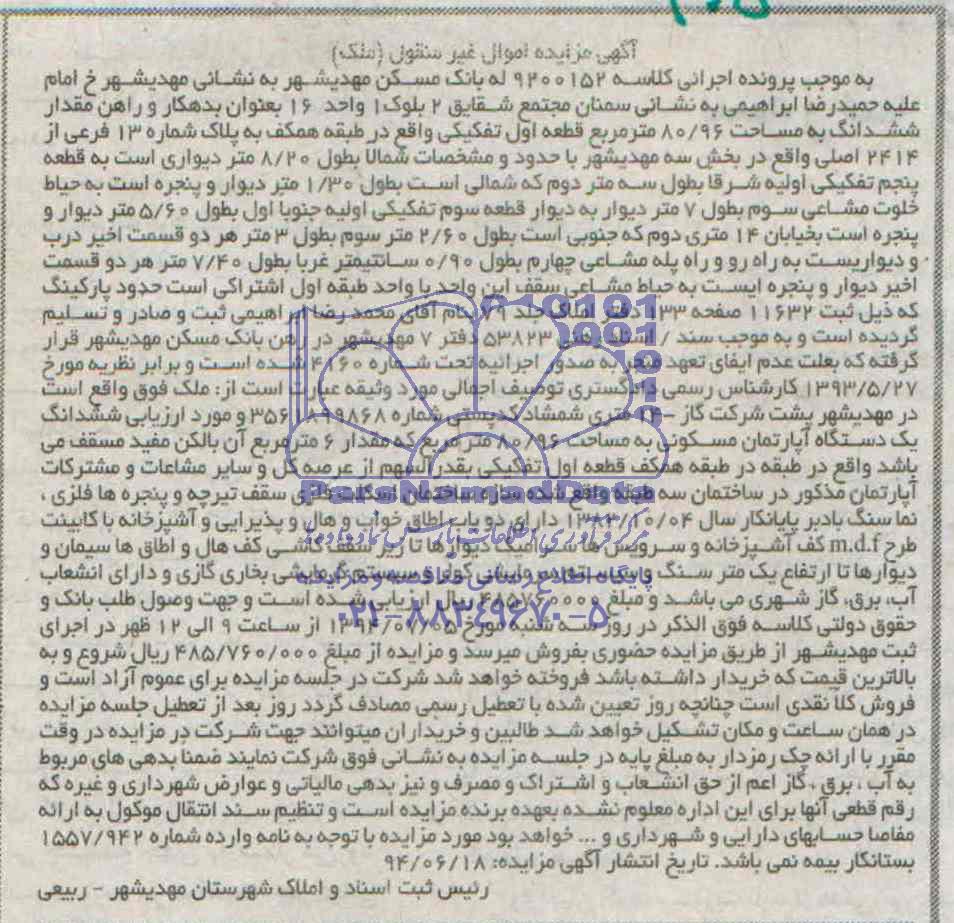 آگهی مزایده اموال غیر منقول (ملک)
به موجب پرونده اجرائی کلاسه ۹۲۰۰۱۵۲ له بانک مسکن مهدیشهر به نشانی مهدیشهر خ امام
علیه حمیدرضا ابراهیمی به نشانی سمنان مجتمع شقایق ۲ بلوک۱ واحد ۱۶ بعنوان بدهکار و راهن مقدار
ششدانگ به مساحت ۸۰/۹۶ مترمربع قطعه اول تفکیکی واقع در طبقه همکف به پلاک شماره ۱۳ فرعی از
۲۴۱۴ اصلی واقع در بخش سه مهدیشهر با حدود و مشخصات شمالا بطول ۸/۲۰ متر دیواری است به قطعه
پنجم تفکیکی اولیه شرقا بطول سه متر دوم که شمالی است بطول ۱/۳۰ متر دیوار و پنجره است به حیاط
خلوت مشاعی سوم بطول ۷ متر دیوار به دیوار قطعه سوم تفکیکی اولیه جنوبا اول بطول ۵/۶۰ متر دیوار و
پنجره است بخیابان ۱۴ متری دوم که جنوبی است بطول ۲/۶۰ متر سوم بطول ۳ متر هر دو قسمت اخیر درب
و دیواریست به راه رو و راه پله مشاعی چهارم بطول ۰/۹۰ سانتیمتر غربا بطول ۷/۴۰ متر هر دو قسمت
اخیر دیوار و پنجره ایست به حیاط مشاعی سقف این واحد با واحد طبقه اول اشتراکی است حدود پارکینگ
که ذیل ثبت ۱۱۶۳۲ صفحه ۱۳۳ دفتر املاک جلد ۷۹ بنام آقای محمد رضا ابراهیمی ثبت و صادر و تسلیم
گردیده است و به موجب سند / اسناد رهنی ۵۳۸۲۳ دفتر ۷ مهدیشهر در رهن بانک مسکن مهدیشهر قرار
گرفته که بعلت عدم ایفای تعهد منجر به صدور اجرائیه تحت شماره شده است و برابر نظریه مورخ
۱۳۹۳/۵/۲۷ کارشناس رسمی دادگستری توصیف اجمالی مورد وثیقه عبارت است از: ملک فوق واقع است
در مهدیشهر پشت شرکت گاز متری شمشاد کدپستی شماره و مورد ارزیابی ششدانگ
یک دستگاه آپارتمان مسکونی به مساحت ۸۰/۹۶ متر مربع که مقدار ۶ مترمربع آن بالکن مفید مسقف می
باشد واقع در طبقه در طبقه همکف قطعه اول تفکیکی بقدرالسهم از عرصه کل و سایر مشاعات و مشترکات
آپارتمان مذکور در ساختمان سه طبقه واقع شده سازه ساختمان اسکلت فلزی سقف تیرچه و پنجره ها فلزی ،
نما سنگ بادبر پایانکار سال ۱۳۸۳/۱۰/۰۴ دارای دو باب اطاق خواب و هال و پذیرایی و آشپزخانه با کابینت
طرح m.d.f کف آشپزخانه و سرویس ها سرامیک دیوارها تا زیر سقف کاشی کف هال و اطاق ها سیمان و
دیوارها تا ارتفاع یک متر سنگ و سیستم گرمایشی بخاری گازی و دارای انشعاب
آب، برق، گاز شهری می باشد و مبلغ ریال ارزیابی شده است و جهت وصول طلب بانک و
حقوق دولتی کلاسه فوق الذکر در روز سه شنبه مورخ از ساعت ۹ الی ۱۲ ظهر در اجرای
ثبت مهدیشهر از طریق مزایده حضوری بفروش میرسد و مزایده از مبلغ ۴۸۵/۷۶۰/۰۰۰ ریال شروع و به
بالاترین قیمت که خریدار داشته باشد فروخته خواهد شد شرکت در جلسه مزایده برای عموم آزاد است و
فروش کلا نقدی است چنانچه روز تعیین شده با تعطیل رسمی مصادف گردد روز بعد از تعطیل جلسه مزایده
در همان ساعت و مکان تشکیل خواهد شد طالبین و خریداران میتوانند جهت شرکت در مزایده در وقت
مقرر با ارائه چک رمزدار به مبلغ پایه در جلسه مزایده به نشانی فوق شرکت نمایند ضمنا بدهی های مربوط
به آب ، برق ، گاز اعم از حق انشعاب و اشتراک و مصرف و نیز بدهی مالیاتی و عوارض شهرداری و غیره که
رقم قطعی آنها برای این اداره معلوم نشده بعهده برنده مزایده است و تنظیم سند انتقال موکول به ارائه
مفاصا حسابهای دارایی و شهرداری و ... خواهد بود مورد مزایده با توجه به نامه وارده شماره ۱۵۵۷/۹۴۲
بستانکار بیمه نمی باشد. تاریخ انتشار آگهی مزایده: ۹۴/۰۶/۱۸
رئیس ثبت اسناد و املاک شهرستان مهدیشهر - ربیعی
ParsNamadData
پایگاه اطلاع رسانی مناقصه و مزایده
۰۲۱-۸۸۳۴۹۶۷۰-۵